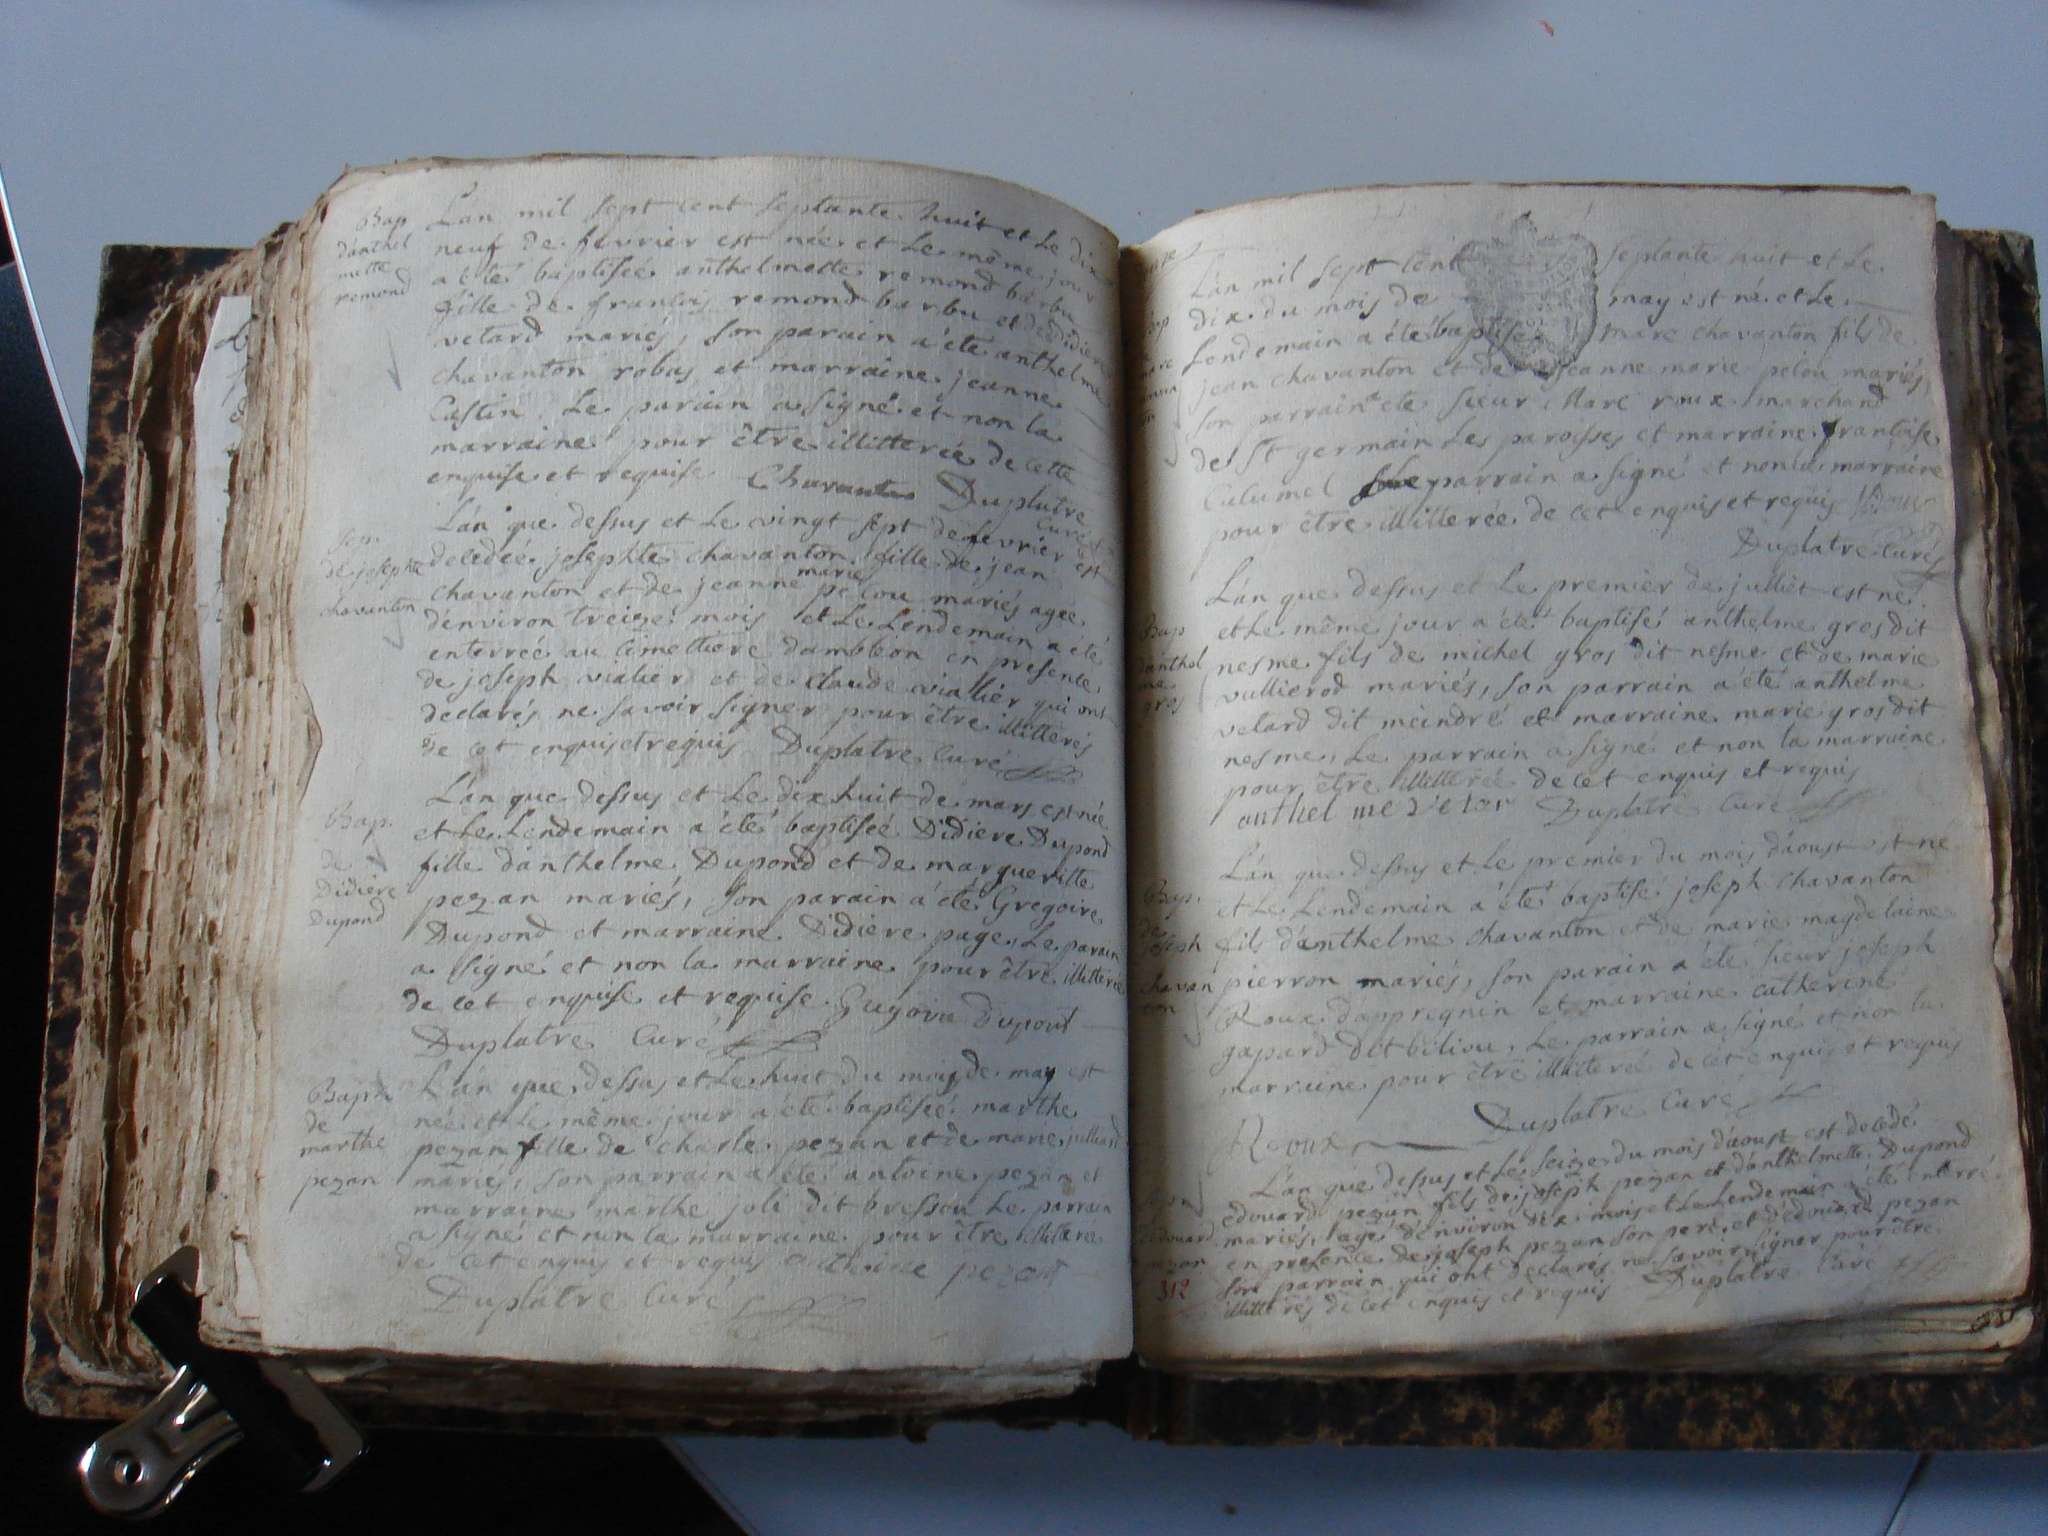 Bap
d'anthel
mette
remond
L'an mil sept cent septante huit et le dix
neuf de fevrier est née et le même jour
a été baptisée anthelmette remond barbu
fille de francois remond barbu et de didiere
velard mariés, son parain a été anthelme
chavanton robas et marraine jeanne
Castin le parain a signé et non la
marraine pour être illitterée de cette
enquise et requise Chavanton Duplatre
curé
Sep.
de josephte
chavanton
L'an que dessus et le vingt sept de fevrier est
decedée josephte chavanton fille de jean
chavanton et de jeanne marie pelou mariés agée
d'environ treize mois et le lendemain a été
enterrée au cimettiere dambleon en presence
de joseph vialier et de claude viallier qui ont
declarés ne savoir signer pour être illitterés
de cet enquis et requis Duplatre Curé
Bap.
de
Didiere
Dupond
L'an que dessus et le dix huit de mars est née
et le lendemain a été baptisée Didiere Dupond
fille d'anthelme Dupond et de marguerite
pezan mariés, son parain a été Gregoire
Dupond et marraine Didiere page, Le parain
a signé et non la marraine pour être illitterée
de cet enquise et requise. Gregoire Dupont
Duplatre Curé
Bap
de
marthe
pezan
L'an que dessus et le huit du mois de may est
née et le même jour a été baptisée marthe
pezan fille de charle pezan et de marie julliand
mariés, son parrain a été antoine pezan et
marraine marthe joli dit bresson Le parrain
a signé et non la marraine pour être illitterée
de cet enquis et requis anthoine pezant
Duplatre Curé
L'an mil sept cent septante huit et le
dix du mois de may est né et le
lendemain a été baptisé marc chavanton fils de
jean chavanton et de jeanne marie pelou mariés,
son parrain a été sieur Marc roux marchand
de St germain Les paroisses et marraine francoise
Culumel Le parrain a signé et non la marraine
pour être illitterée de cet enquis et requis Roux
Duplatre Curé
Bap
d'anthel
me
gros
L'an que dessus et le premier de julliet est né
et le même jour a été baptisé anthelme gros dit
nesme fils de michel gros dit nesme et de marie
vullierod mariés, son parrain a été anthelme
velard dit meindre et marraine marie gros dit
nesme, Le parrain a signé et non la marraine
pour être illitterée de cet enquis et requis
anthel me velar Duplatre Curé
Bap.
de
joseph
chavan
ton
L'an que dessus et le premier du mois d'aoust est né
et le lendemain a été baptisé joseph chavanton
fils d'anthelme chavanton et de marie magdelaine
pierron mariés, son parain a été sieur joseph
Roux d'appregnin et marraine catherine
gapard dit biliou, Le parrain a signé et non la
marraine pour être illitterée de cet enquis et requis
Duplatre Curé
Roux
edouard
pezan
L'an que dessus et le seize du mois d'aoust est decedé
edouard pezan fils de joseph pezan et d'anthelmette Dupond
mariés, agé d'environ dix mois et le lendemain a été enterré
en presence de joseph pezan son pere et d'edouard pezan
son parrain qui ont declarés ne savoir signer pour être
illitterés de cet enquis et requis Duplatre Curé
312